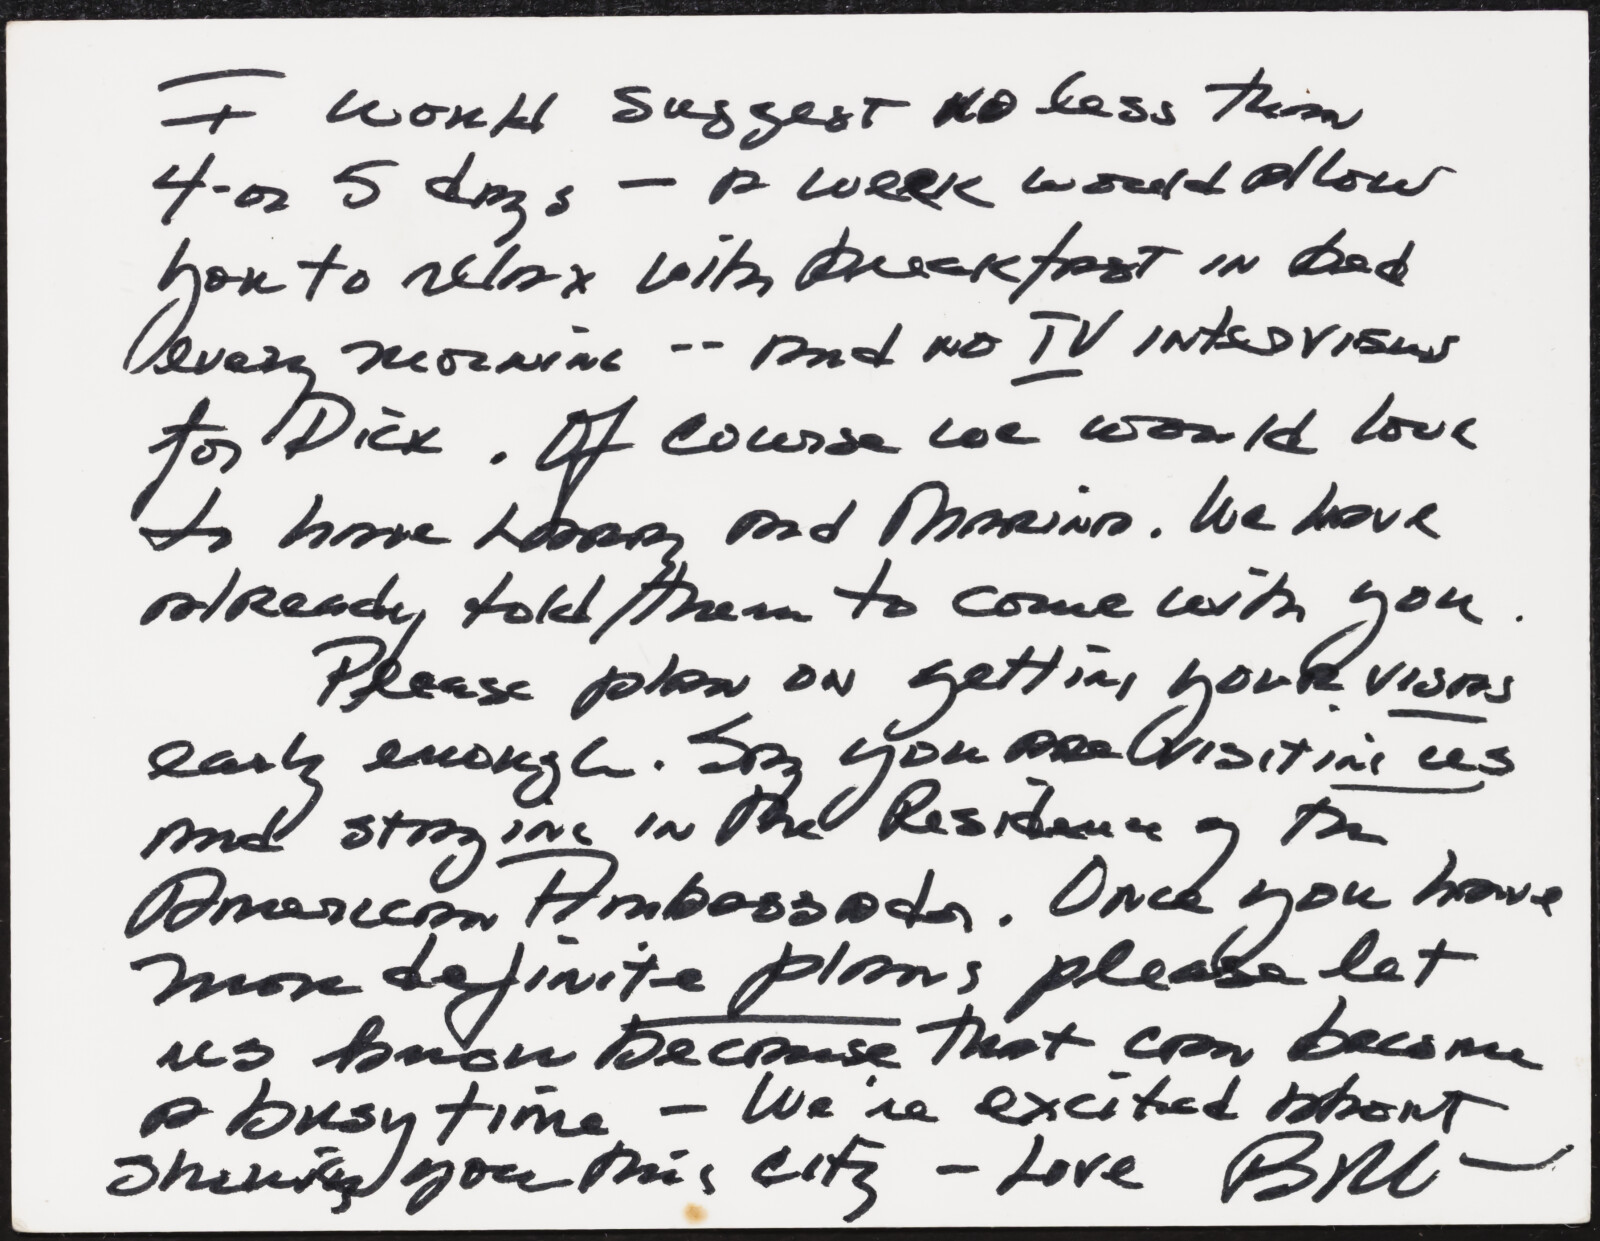 I would suggest no less than
4-or 5 days — a week would allow
you to relax with breakfast in bed
every morning -- and no TV interviews
for Dick. Of course we would love
to have Larry and Marina. We have
already told them to come with you.
Please plan on getting your visas
early enough. Say you are visiting us
and staying in the Residence of the
American Ambassador. Once you have
more definite plans please let
us know because that can become
a busy time — We're excited about
sharing you this city — Love Bill